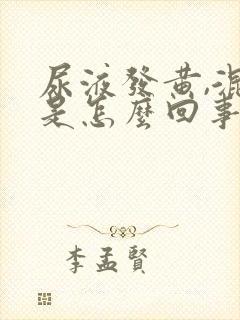 尿液發黃,混
是怎麼回事
李孟賢